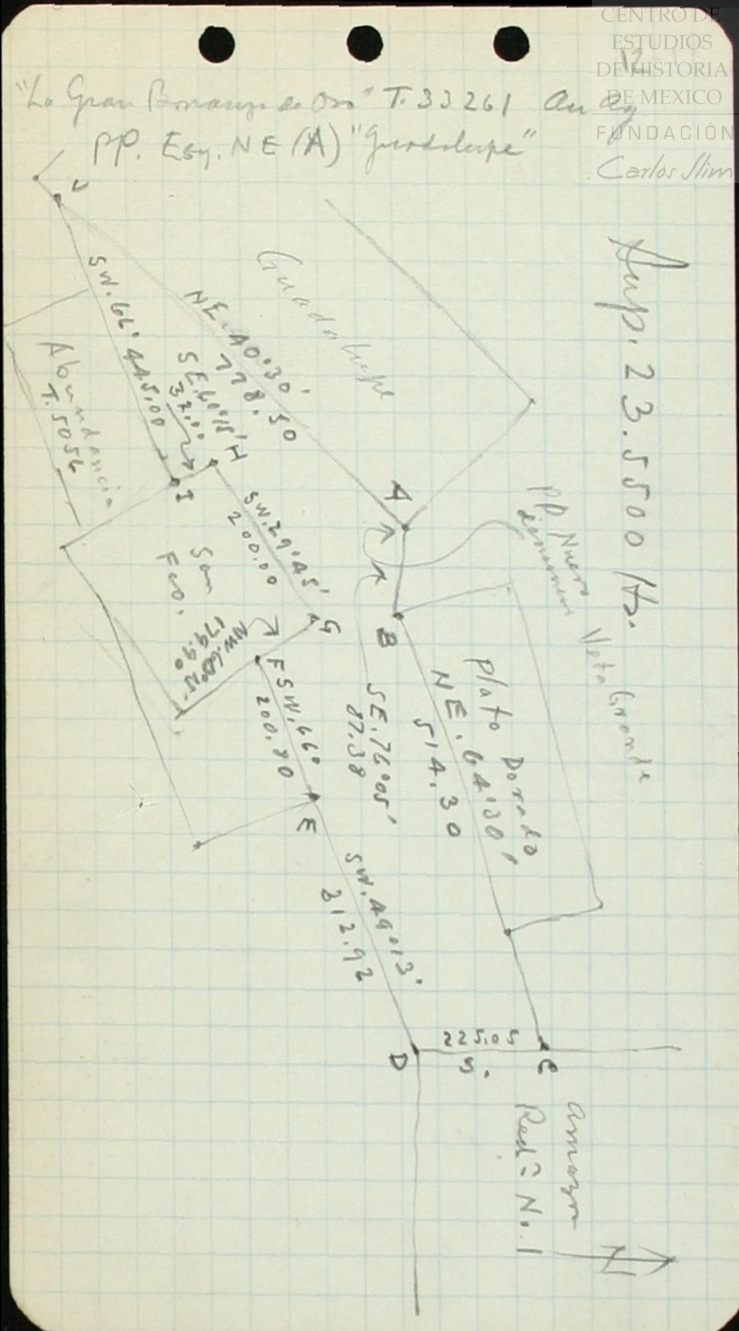 CENTRO DE
ESTUDIOS
DE HISTORIA
DE MEXICO
FUNDACIÓN
Carlos Slim
12
"La Gran Bonanza de Oro" T. 33261 Au Ag
PP. Esq. NE (A) "Guadalupe"
Sup. 23.5500 Hs.
Guadalupe
NE. 40°30'
778.50
SW. 66°
445.00
SE. 60°15'
32.00
H
I
Abundancia
T. 5056
SW. 29°45'
200.00
San
Fco.
NW. 60°15'
179.90
G
F
SW. 66°
200.80
E
A
B
PP. Nuevo
Veta Grande
SE. 76°05'
87.38
Plato Dorado
NE. 64°30'
514.30
SW. 49°13'
312.92
D
225.05
S.
C
Amazon
Red≈ No. 1